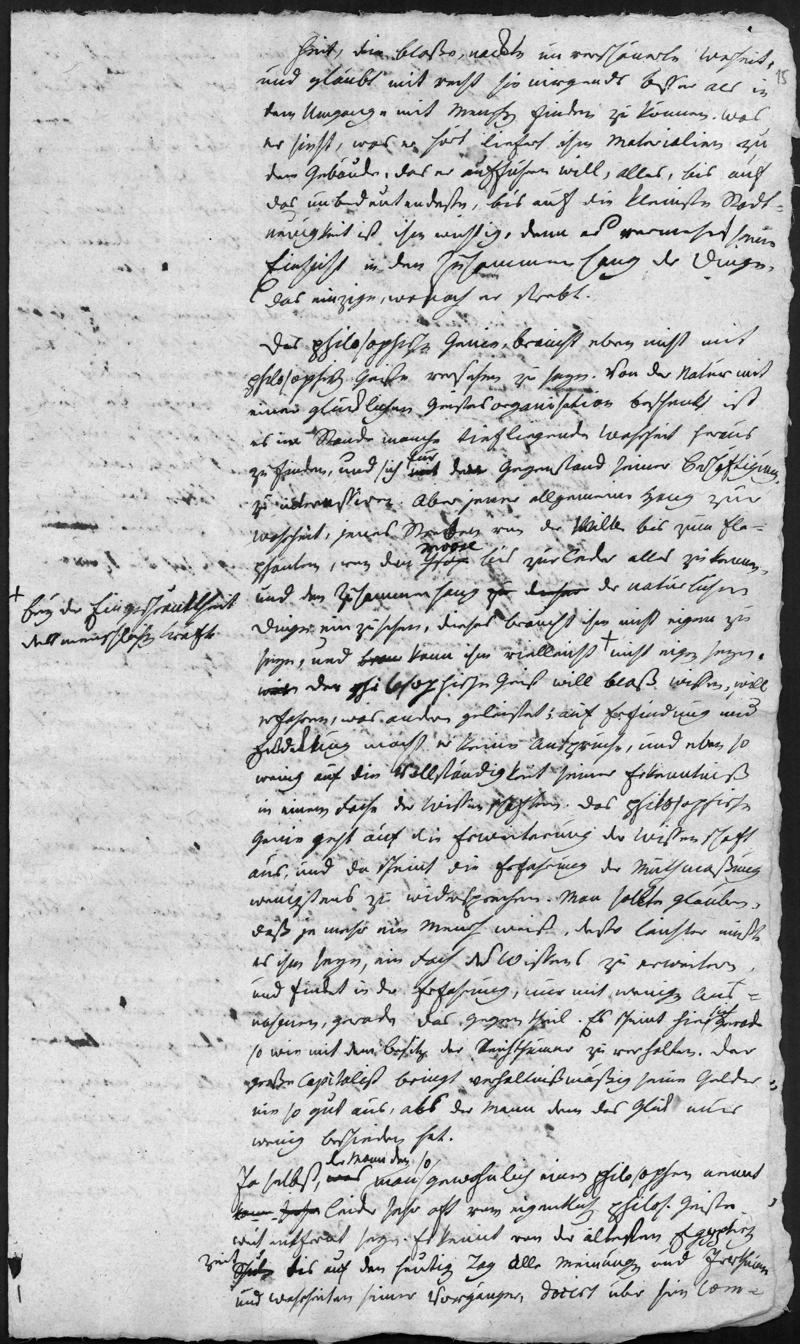 heit, die bloße, nackte un verschönerte Wahrheit,
15
und glaubt mit recht sie nirgends besser als in
dem Umgange mit Menschen finden zu können. Was
er sieht, was er hört liefert ihm Materialien zu
dem Gebäude, das er aufführen will, alles, bis auf
das unbedeutendeste, bis auf die kleinste Stadt-
neuigkeit ist ihm wichtig, denn es vermehrt seine
Einsicht in den Zusammenhang der Dinge,
das einzige, wonach er strebt.
Das philosophische Genie, braucht eben nicht mit
philosophischem Geiste versehen zu seyn. Von der Natur mit
einer glücklichen Geistesorganisation beschenkt ist
es im Stande manche tiefliegende Wahrheit heraus
zu finden, und sich für den Gegenstand seiner Beschäftigung
zu interessiren. Aber jener allgemeine Hang zur
Wahrheit, jenes Streben von der Milbe bis zum Ele-
phanten, von dem Moose bis zur Ceder alles zu kennen,
und den Zusammenhang der natürlichen
Dinge einzusehen, dieses braucht ihm nicht eigen zu
seyn, und kann ihm vielleicht + nicht eigen seyn.
+ bey der Eingeschränktheit
der menschlichen Kräfte
der philosophische Geist will bloß wissen, will
erfahren, was andere geleistet; auf Erfindung und
Entdeckung macht er keine Ansprüche, und eben so
wenig auf die Vollständigkeit seiner Erkenntniß
in einem Fache der Wissenschaften. Das philosophische
Genie geht auf die Erweiterung der Wissenschaft
aus, und da scheint die Erfahrung der Muthmaßung
wenigstens zu widersprechen. Man sollte glauben,
daß je mehr ein Mensch weiß, desto leichter müßte
es ihm seyn, ein Fach des Wissens zu erweitern,
und findet in der Erfahrung, nur mit wenigen Aus-
nahmen, gerade das Gegentheil. Es scheint hier sich gerade
so wie mit dem Besitz der Reichthümer zu verhalten. Der
große Capitalist bringt verhältnißmäßig seine Gelder
nie so gut aus, als der Mann dem das Glück nur
wenig beschieden hat.
Ja selbst, der Mann den man so gewöhnlich einen philosophen nennt
leider sehr oft vom eigentlich philos. Geiste
weit entfernt seyn. Er kennt von der ältesten Egyptischen
Zeit bis auf den heutigen Tag alle Meinungen und Irrthümer
und Wahrheiten seiner Vorgänger, docirt über sein Com-